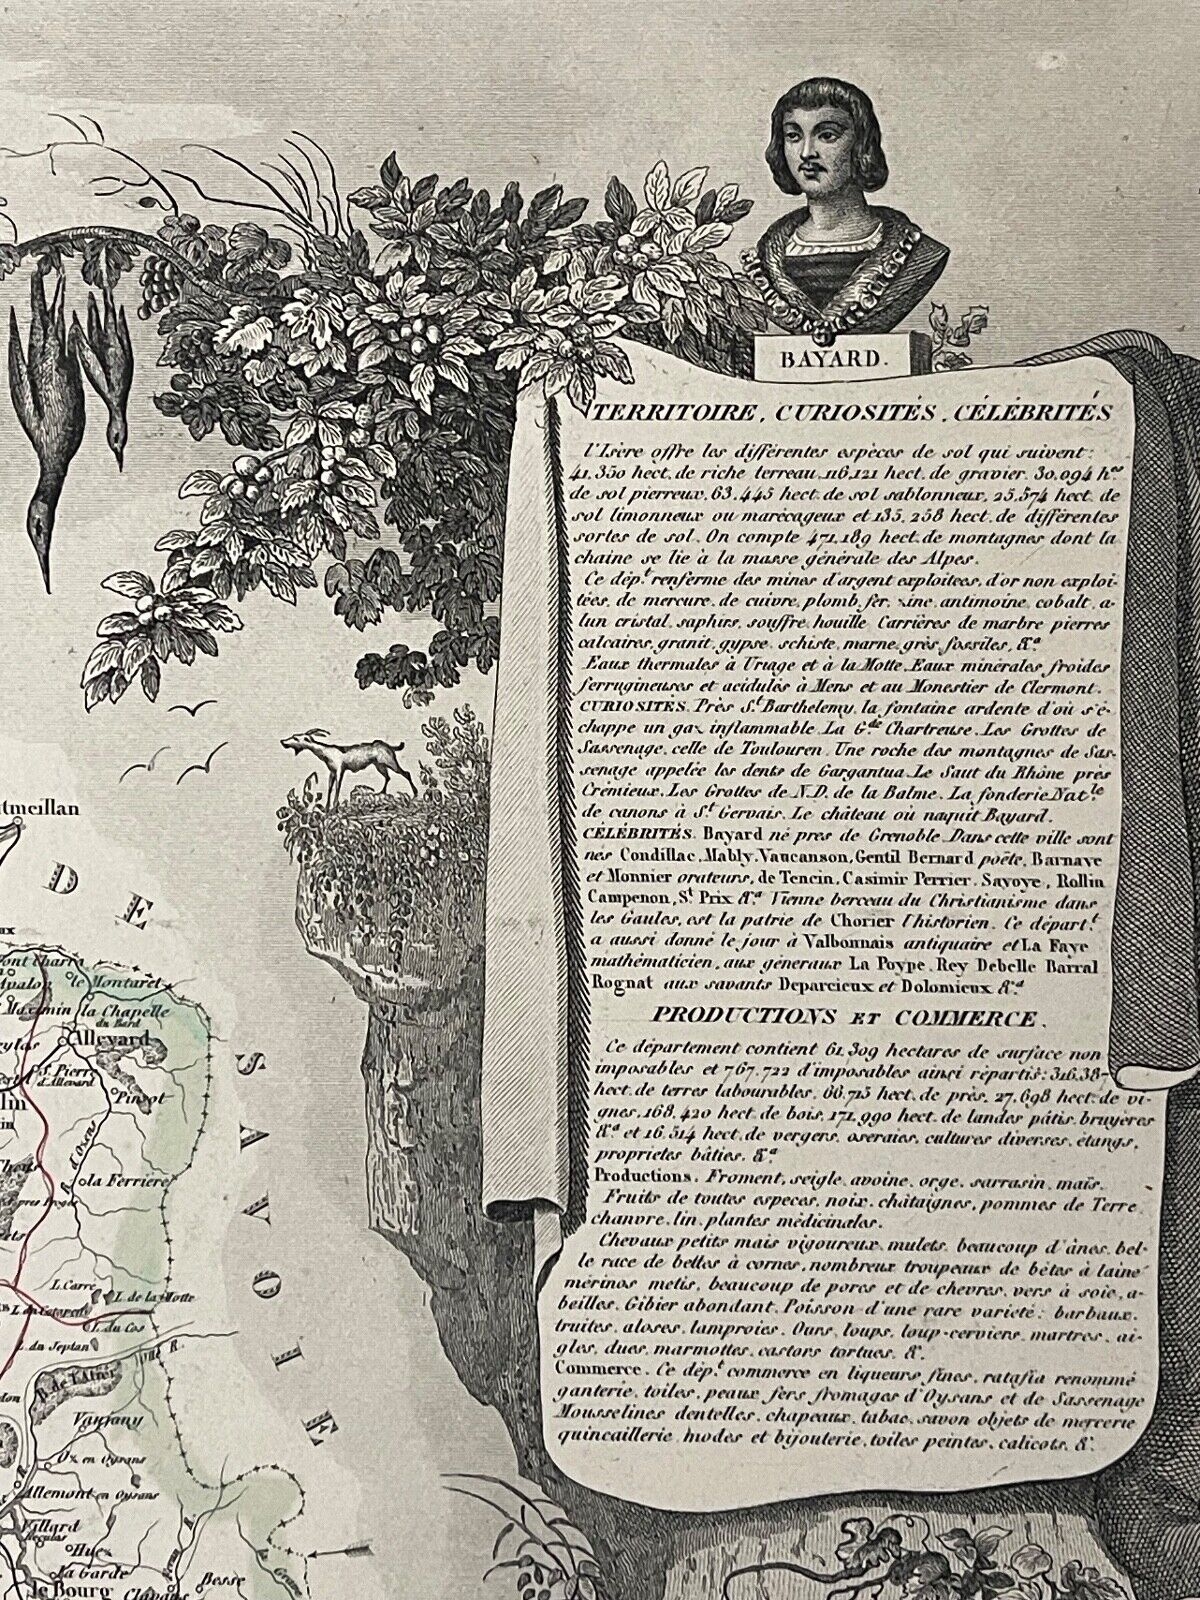 BAYARD.
TERRITOIRE, CURIOSITÉS, CÉLÉBRITÉS
l'Isère offre les différentes espèces de sol qui suivent:
41,350 hect. de riche terreau, 116,121 hect. de gravier, 30,094 h.es
de sol pierreux, 63,445 hect. de sol sablonneux, 25,574 hect. de
sol limonneux ou marécageux et 135,258 hect. de différentes
sortes de sol. On compte 471,189 hect. de montagnes dont la
chaine se lie à la masse générale des Alpes.
Ce dép.t renferme des mines d'argent exploitees, d'or non exploi-
tées, de mercure, de cuivre, plomb, fer, zinc, antimoine, cobalt, a-
lun cristal, saphirs, souffre, houille. Carrières de marbre pierres
calcaires, granit, gypse, schiste, marne, grès, fossiles, &.a
Eaux thermales à Uriage et à la Motte. Eaux minérales froides
ferrugineuses et acidulés à Mens et au Monestier de Clermont.
CURIOSITÉS. Près S.t Barthelemy, la fontaine ardente d'où s'é-
chappe un gaz inflammable. La G.de Chartreuse. Les Grottes de
Sassenage, celle de Toulouren. Une roche des montagnes de Sas-
senage appelée les dents de Gargantua. Le Saut du Rhône près
Crémieux. Les Grottes de N.D. de la Balme. La fonderie Nat.le
de canons à S.t Gervais. Le château où naquit Bayard.
CÉLÉBRITÉS. Bayard né pres de Grenoble. Dans cette ville sont
nes Condillac, Mably, Vaucanson, Gentil Bernard poëte, Barnave
et Monnier orateurs, de Tencin, Casimir Perrier, Savoye, Rollin
Campenon, S.t Prix &.a Vienne berceau du Christianisme dans
les Gaules, est la patrie de Chorier l'historien. Ce départ.t
a aussi donné le jour à Valbonnais antiquaire et La Faye
mathématicien, aux géneraux La Poype, Rey Debelle Barral
Rognat aux savants Deparcieux et Dolomieux &.a
PRODUCTIONS ET COMMERCE.
Ce département contient 61,309 hectares de surface non
imposables et 767,722 d'imposables ainsi répartis: 316,387
hect. de terres labourables, 66,715 hect. de près, 27,698 hect. de vi-
gnes, 168,420 hect. de bois, 171,990 hect. de landes pâtis, bruyères
&.a et 16,514 hect. de vergers, oseraies, cultures diverses, étangs,
proprietes bâties, &.a
Productions. Froment, seigle, avoine, orge, sarrasin, maïs.
Fruits de toutes especes, noix, châtaignes, pommes de Terre,
chanvre, lin, plantes médicinales.
Chevaux petits mais vigoureux, mulets, beaucoup d'ânes, bel-
le race de belles à cornes, nombreux troupeaux de bêtes à laine
mérinos metis, beaucoup de porcs et de chevres, vers à soie, a-
beilles. Gibier abondant. Poisson d'une rare varieté: barbaux,
truites, aloses, lamproies. Ours, loups, loup-cerviers, martres, ai-
gles, ducs, marmottes, castors tortues, &.
Commerce. Ce dép.t commerce en liqueurs fines, ratafia renommé
ganterie, toiles, peaux, fers, fromages d'Oysans et de Sassenage
Mousselines dentelles, chapeaux, tabac, savon objets de mercerie
quincaillerie, modes et bijouterie, toiles peintes, calicots, &.
tmeillan
DE
SAVOIE
Pont charra
Avalon
le Montaret
S.t Maximin
la Chapelle
du Bard
Allevard
S.t Pierre
d'Allevard
Pinsot
la Ferrière
L. Carré
L. de la Motte
L. du Cos
B. de l'Atner
Vaujany
Oz en Oysans
Allemont en Oysans
Villard
Reculas
Huez
la Garde
le Bourg
Besse
Clavans